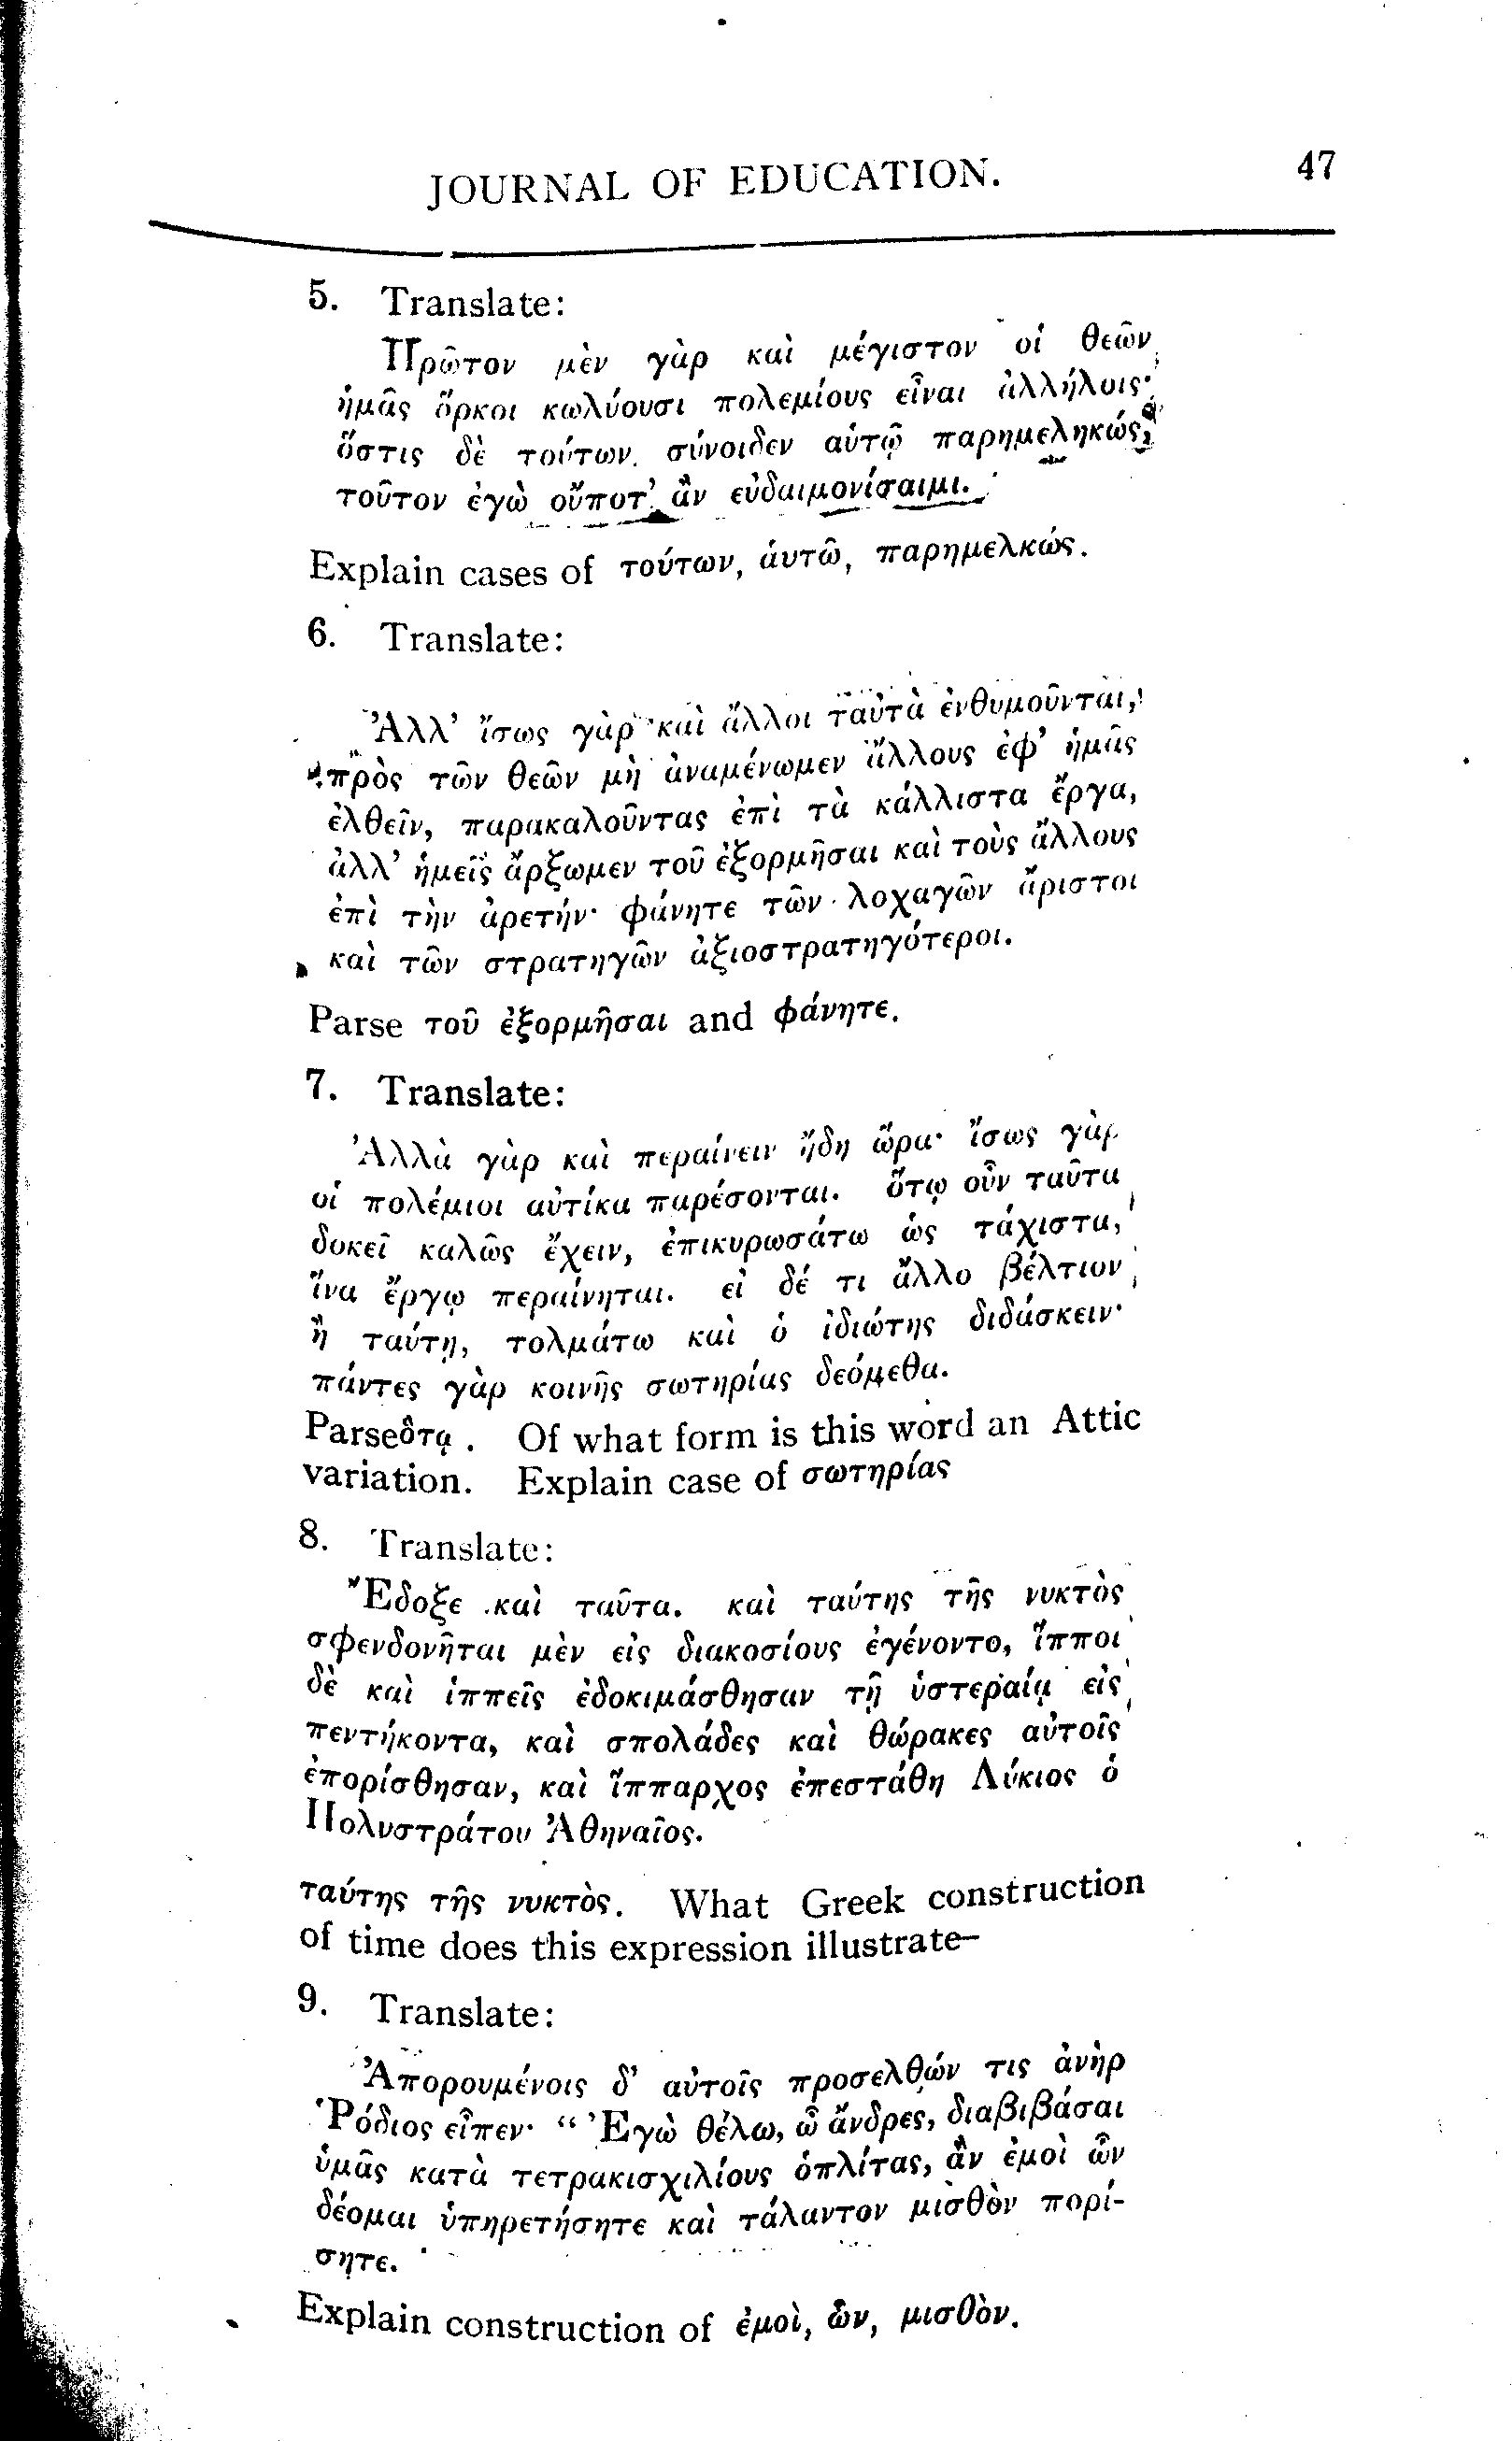 JOURNAL OF EDUCATION. 47
5. Translate:
Πρῶτον μὲν γὰρ καὶ μέγιστον οἱ θεῶν
ἡμᾶς ὅρκοι κωλύουσι πολεμίους εἶναι ἀλλήλοις·
ὅστις δὲ τούτων σύνοιδεν αὑτῷ παρημεληκώς,
τοῦτον ἐγὼ οὔποτ' ἂν εὐδαιμονίσαιμι.
Explain cases of τούτων, ἁυτῶ, παρημελκώς.
6. Translate:
Ἀλλ' ἴσως γὰρ καὶ ἄλλοι ταὐτὰ ἐνθυμοῦνται,
πρὸς τῶν θεῶν μὴ ἀναμένωμεν ἄλλους ἐφ' ἡμᾶς
ἐλθεῖν, παρακαλοῦντας ἐπὶ τὰ κάλλιστα ἔργα,
ἀλλ' ἡμεῖς ἄρξωμεν τοῦ ἐξορμῆσαι καὶ τοὺς ἄλλους
ἐπὶ τὴν ἀρετήν· φάνητε τῶν λοχαγῶν ἄριστοι
καὶ τῶν στρατηγῶν ἀξιοστρατηγότεροι.
Parse τοῦ ἐξορμῆσαι and φάνητε.
7. Translate:
Ἀλλὰ γὰρ καὶ περαίνειν ἤδη ὥρα· ἴσως γὰρ
οἱ πολέμιοι αὐτίκα παρέσονται. ὅτῳ οὖν ταῦτα
δοκεῖ καλῶς ἔχειν, ἐπικυρωσάτω ὡς τάχιστα,
ἵνα ἔργῳ περαίνηται. εἰ δέ τι ἄλλο βέλτιον
ἢ ταύτῃ, τολμάτω καὶ ὁ ἰδιώτης διδάσκειν·
πάντες γὰρ κοινῆς σωτηρίας δεόμεθα.
Parse ὅτᾳ. Of what form is this word an Attic
variation. Explain case of σωτηρίας
8. Translate:
Ἔδοξε καὶ ταῦτα. καὶ ταύτης τῆς νυκτὸς
σφενδονῆται μὲν εἰς διακοσίους ἐγένοντο, ἵπποι
δὲ καὶ ἱππεῖς ἐδοκιμάσθησαν τῇ ὑστεραίᾳ εἰς
πεντήκοντα, καὶ σπολάδες καὶ θώρακες αὐτοῖς
ἐπορίσθησαν, καὶ ἵππαρχος ἐπεστάθη Λύκιος ὁ
Πολυστράτου Ἀθηναῖος.
ταύτης τῆς νυκτὸς. What Greek construction
of time does this expression illustrate—
9. Translate:
Ἀπορουμένοις δ' αὐτοῖς προσελθών τις ἀνὴρ
Ῥόδιος εἶπεν· “Ἐγὼ θέλω, ὦ ἄνδρες, διαβιβάσαι
ὑμᾶς κατὰ τετρακισχιλίους ὁπλίτας, ἂν ἐμοὶ ὧν
δέομαι ὑπηρετήσητε καὶ τάλαντον μισθὸν πορί-
σητε.
Explain construction of ἐμοὶ, ὧν, μισθὸν.